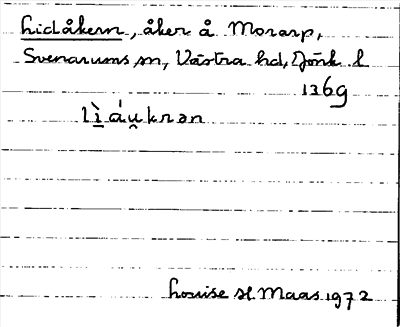 Lidåkern, åker å Morarp,
Svenarums sn, Västra hd, Jönk. l
1369
lìáu̯krən
Louise H. Maas 1972